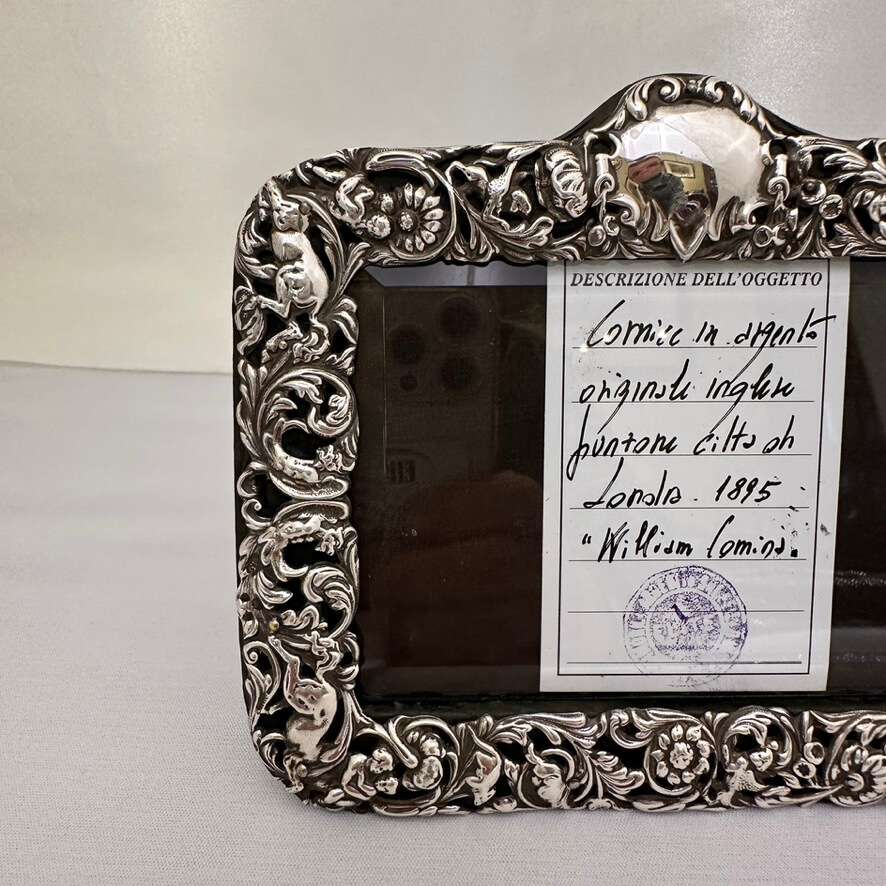 DESCRIZIONE DELL'OGGETTO
Cornice in argento
originale inglese
punzone città di
Londra. 1895
"William Comins.
1